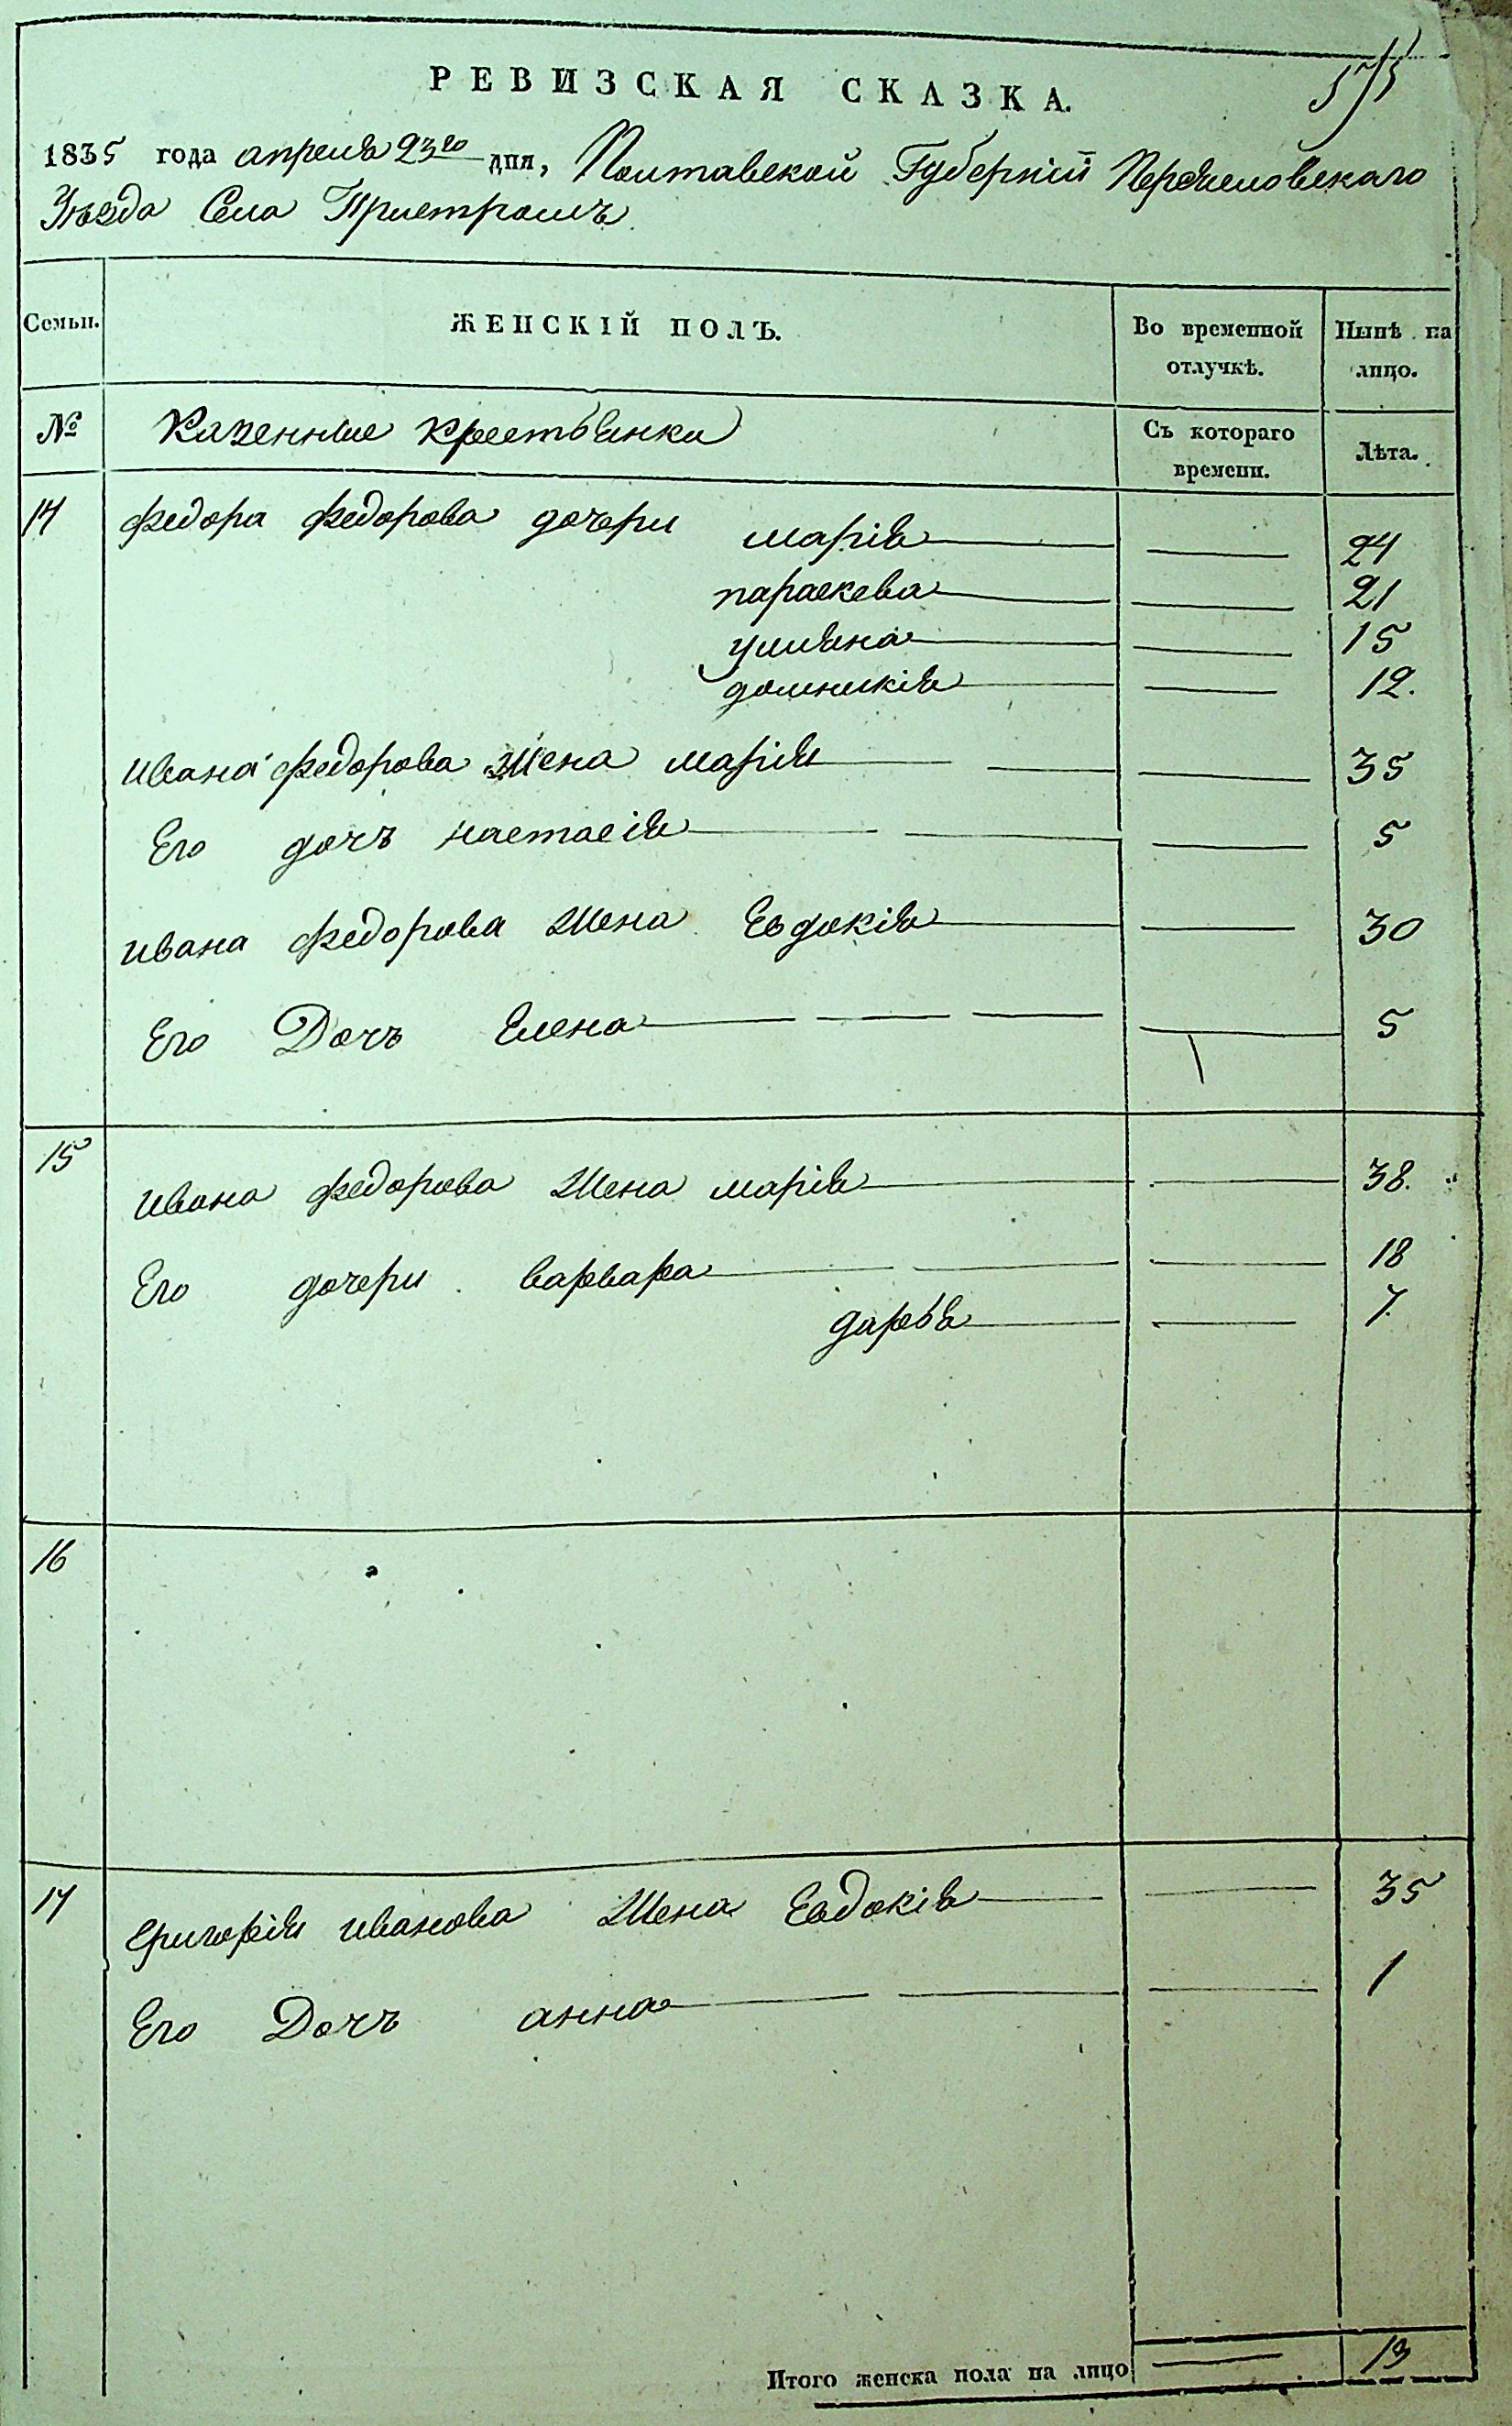 575
РЕВИЗСКАЯ СКАЗКА.
1835 года апреля 23го дня, Полтавской Губерніи Переяславскаго
Уѣзда Села Пристромъ
Семьи. ЖЕНСКІЙ ПОЛЪ. Во временной отлучкѣ. Нынѣ на лицо.
№ Казенные крестьянки Съ котораго времени. Лѣта.
14 Федора Федорова дочери марія 24
параскева 21
улияна 15
домникія 12.
ивана федорова жена марія 35
Его дочъ настасія 5
ивана федорова жена Евдокія 30
Его Дочъ Елена 5
15 ивана федорова жена марія 38.
Его дочери варвара 18
дарья 7.
16
17 григорія иванова жена Евдокія 35
Его Дочъ анна 1
Итого женска пола на лицо 13